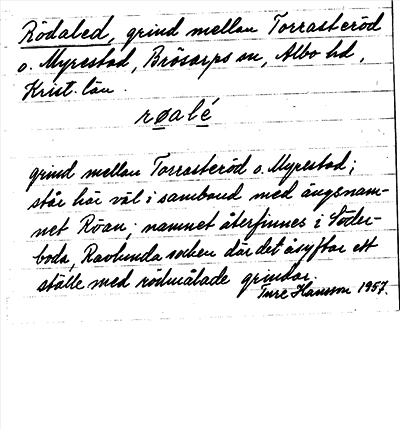 Rödaled, grind mellan Torrasteröd
o. Myrestad, Brösarps sn, Albo hd,
Krist. län.
røalé
grind mellan Torrasteröd o. Myrestad;
står här väl i samband med ängsnam-
net Röan; namnet återfinnes i Söder-
boda, Ravlunda socken där det åsyftar ett
ställe med rödmålade grindar.
Ture Hansson 1957.